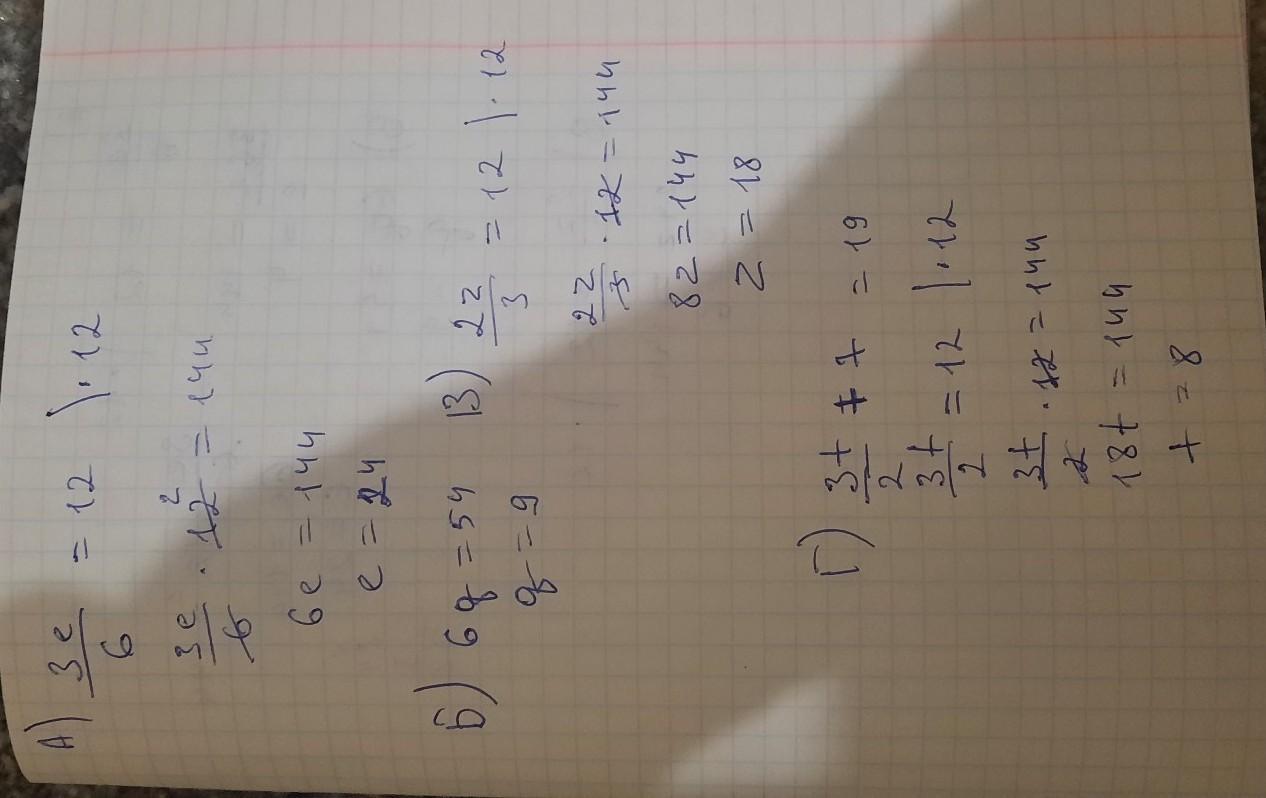 А) 3e/6 = 12 |·12
3e/6 · 12 2 = 144
6e = 144
e = 24
Б) 6g = 54
g = 9
В) 2z/3 = 12 |·12
2z/3 · 12 = 144
8z = 144
z = 18
Г) 3t/2 + 7 = 19
3t/2 = 12 |·12
3t/2 · 12 = 144
18t = 144
t = 8